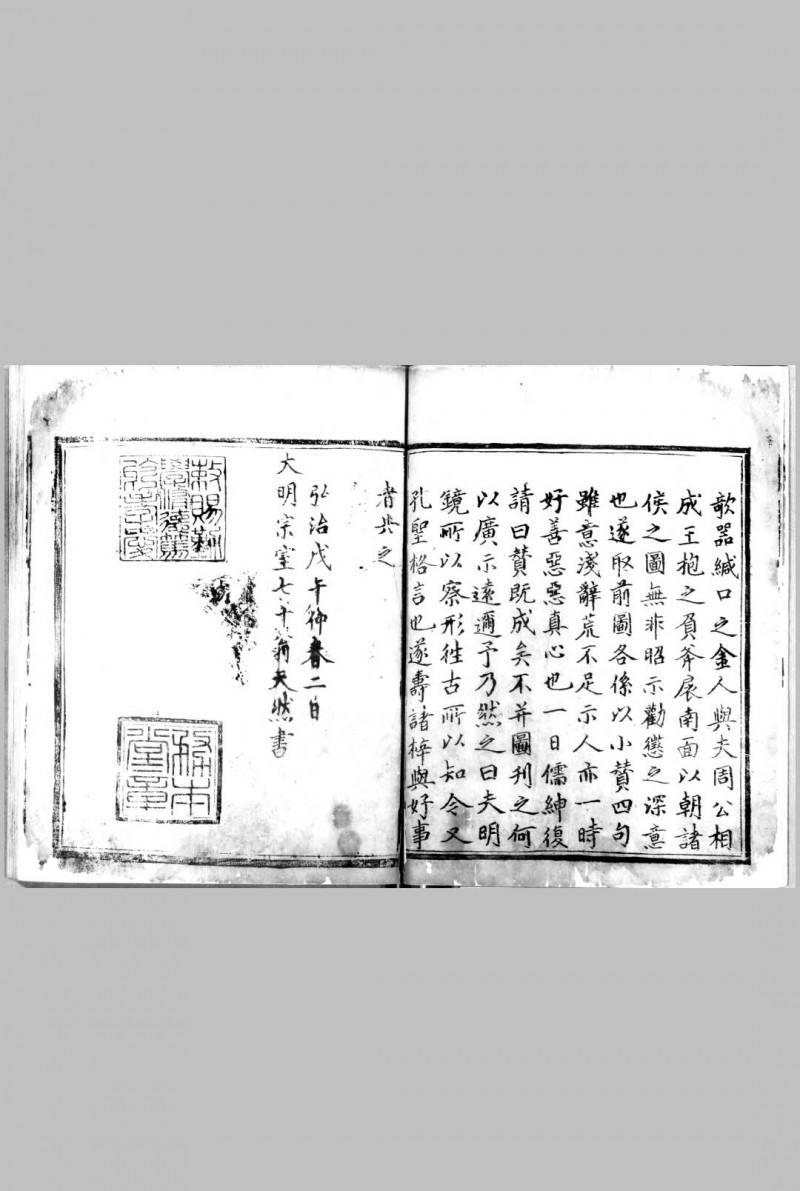 欹器緘口之金人與夫周公相
成王抱之負斧扆南面以朝諸
侯之圖無非昭示勸懲之深意
也遂取前圖各係以小贊四句
雖意淺辭荒不足示人亦一時
好善惡惡真心也一日儒紳復
請曰贊既成矣不并圖刊之何
以廣示遠邇予乃然之曰夫明
鏡所以察形往古所以知今又
孔聖格言也遂壽諸梓與好事
者共之
弘治戊午仲春二日
大明宗室七十翁天然書
勑賜